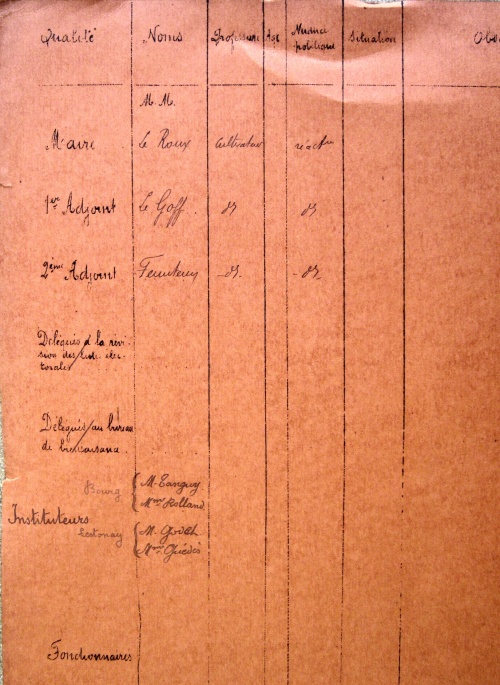 Qualité Noms Profession Age Nuance politique Situation
M.M.
Maire Le Roux Cultivateur réactre
1er Adjoint Le Goff dº dº
2ème Adjoint dº dº
Délégués à la révi-
sion des liste élec-
torales
Délégués au bureau
de bienfaisance.
Bourg M. Tanguy
Mme Rolland
Instituteurs
Lestonay M. Goda
Mme
Fonctionnaires